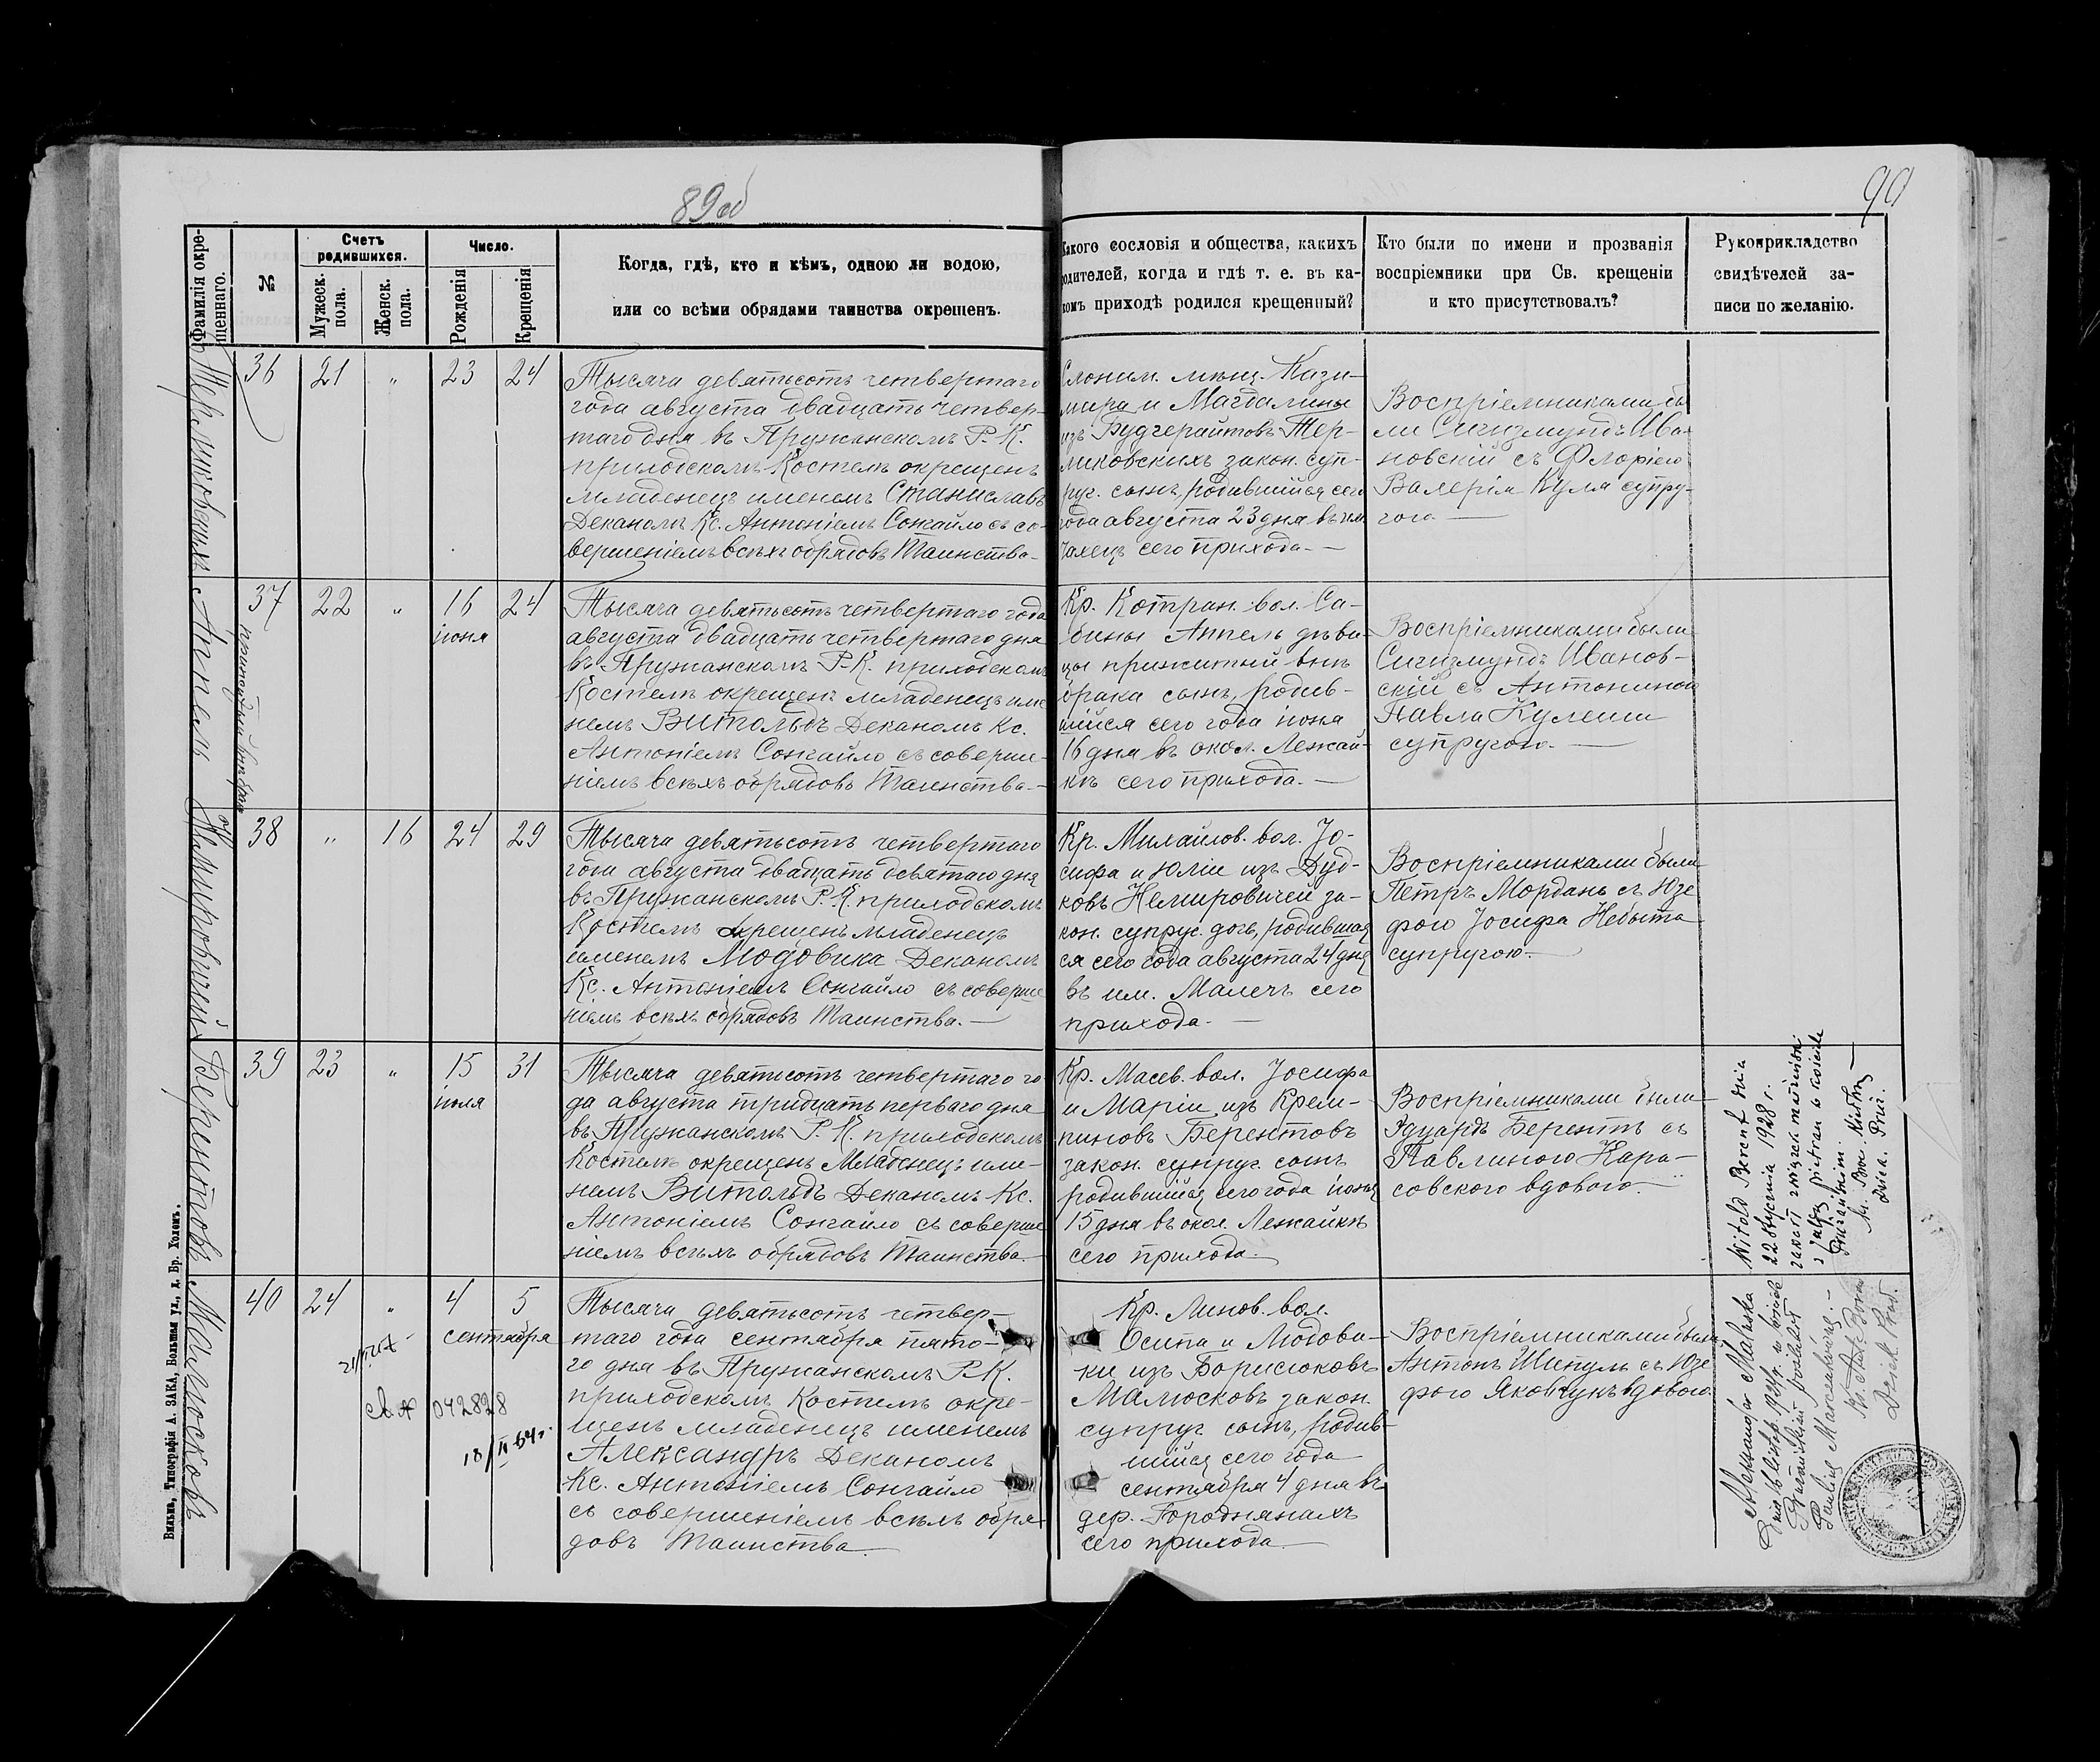 89об
90
Фамилія окре-
щеннаго.
№
Счетъ
родившихся.
Мужеск.
пола.
Женск.
пола.
Число.
Рожденія
Крещенія
Когда, гдѣ, кто и кѣмъ, одною ли водою,
или со всѣми обрядами таинства окрещенъ.
Какого сословія и общества, какихъ
родителей, когда и гдѣ т. е. въ ка-
комъ приходѣ родился крещенный?
Кто были по имени и прозванія
воспріемники при Св. крещеніи
и кто присутствовалъ?
Рукоприкладство
свидѣтелей за-
писи по желанію.
Термиковскихъ
36
21
"
23
24
Тысяча девятьсотъ четвертаго
года августа двадцать четвер-
таго дня въ Пружанскомъ Р.-К.
приходскомъ Костелѣ окрещенъ
младенецъ именемъ Станиславъ
Деканомъ Кс. Антоніемъ Сонгайло съ со-
вершеніемъ всѣхъ обрядовъ Таинства.-
Слоним. мѣщ. Кази-
мира и Магдалины
изъ Рудгерайтовъ Тер-
миковскихъ закон. суп-
руг. сынъ, родившійся сего
года августа 23 дня въ им.
Малечъ сего прихода.-
Воспріемниками бы
ли Сигизмундъ Ива-
новскій съ Флоріею
Валерія Куля супру-
гою.
Аппель
37
прижитый внѣ брака
22
"
16
іюня
24
Тысяча девятьсотъ четвертаго года
августа двадцать четвертаго дня
въ Пружанскомъ Р.-К. приходскомъ
Костелѣ окрещенъ младенецъ име
немъ Витольдъ Деканомъ Кс.
Антоніемъ Сонгайло съ соверше-
ніемъ всѣхъ обрядовъ Таинства.-
Кр. Котран. вол. Са-
бины Аппель дѣви-
цы прижитый внѣ
брака сынъ, родив-
шійся сего года іюня
16 дня въ окол. Лежай-
кѣ сего прихода.-
Воспріемниками были
Сигизмундъ Иванов-
скій съ Антониною
Павла Кулеши
супругою.-
Немировичей
38
"
16
24
29
Тысяча девятьсотъ четвертаго
года августа двадцать девятаго дня
въ Пружанскомъ Р.-К. приходскомъ
Костелѣ крещенъ младенецъ
именемъ Людовика Деканомъ
Кс. Антоніемъ Сонгайло съ соверше
ніемъ всѣхъ обрядовъ Таинства.-
Кр. Михайлов. вол. Іо-
сифа и Юліи изъ Дуд-
ковъ Немировичей за-
кон. супруг. дочь, родившая
ся сего года августа 24 дня
въ им. Малечъ сего
прихода.-
Воспріемниками были
Петръ Морданъ съ Юзе
фою Іосифа Небыта
супругою.-
Берентовъ
39
23
"
15
іюля
31
Тысяча девятьсотъ четвертаго го
да августа тридцать перваго дня
въ Пружанскомъ Р.-К. приходскомъ
Костелѣ окрещенъ Младенецъ име-
немъ Витольдъ Деканомъ Кс.
Антоніемъ Сонгайло съ соверше
ніемъ всѣхъ обрядовъ Таинства.
Кр. Масев. вол. Іосифа
и Маріи изъ Крем-
пиновъ Берентовъ
закон. супруг. сынъ
родившійся сего года
15 дня въ окол. Лежайкѣ
сего прихода.
Воспріемниками были
Эдуардъ Берентъ съ
Павлиною Кара-
совскою вдовою.
Witold Berent dnia
22 stycznia 1928 r.
zawarł związek małżeński
w kościele
Prużańskim.
Малюсковъ
40
24
"
4
5
сентября
АА 042828
18/II 54г.
Тысяча девятьсотъ четвер-
таго года сентября пято-
го дня въ Пружанскомъ Р.-К.
приходскомъ Костелѣ окре-
щенъ младенецъ именемъ
Александръ Деканомъ
Кс. Антоніемъ Сонгайло
съ совершеніемъ всѣхъ обря-
довъ Таинства
Кр. Линов. вол.
Осипа и Людови-
ки изъ Борисюковъ
Малюсковъ закон.
супруг. сынъ, родив-
шійся сего года
сентября 4 дня въ
дер. Городнянахъ
сего прихода
Воспріемниками были
Антонъ Шипуль съ Юзе
фою Яковчукъ вдовою.
w kościele
Prużańskim poślubił
Вильна, Типографія А. ЗАКА, Большая ул., д. Бр. Холемъ.